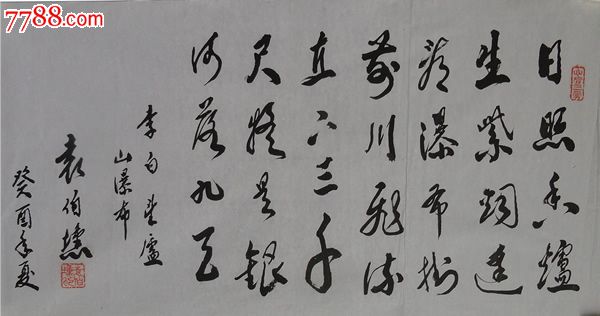 7788.com
日照香爐
生紫烟遥
看瀑布挂
前川飛流
直下三千
尺疑是銀
河落九天
李白望廬
山瀑布
袁伯
癸酉年夏